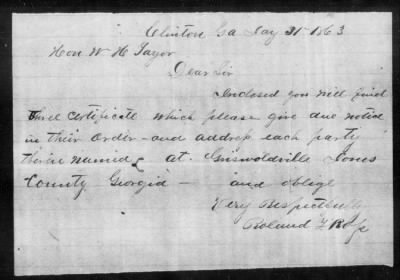 Clinton Ga May 31st 1863
Hon W H Taylor
Dear Sir
Inclosed you will find
three certificate which please give due notice
in their order - and address each party
therin named at Griswoldville Jones
County Georgia - and oblige
Very Respectfully
Roland T Ross